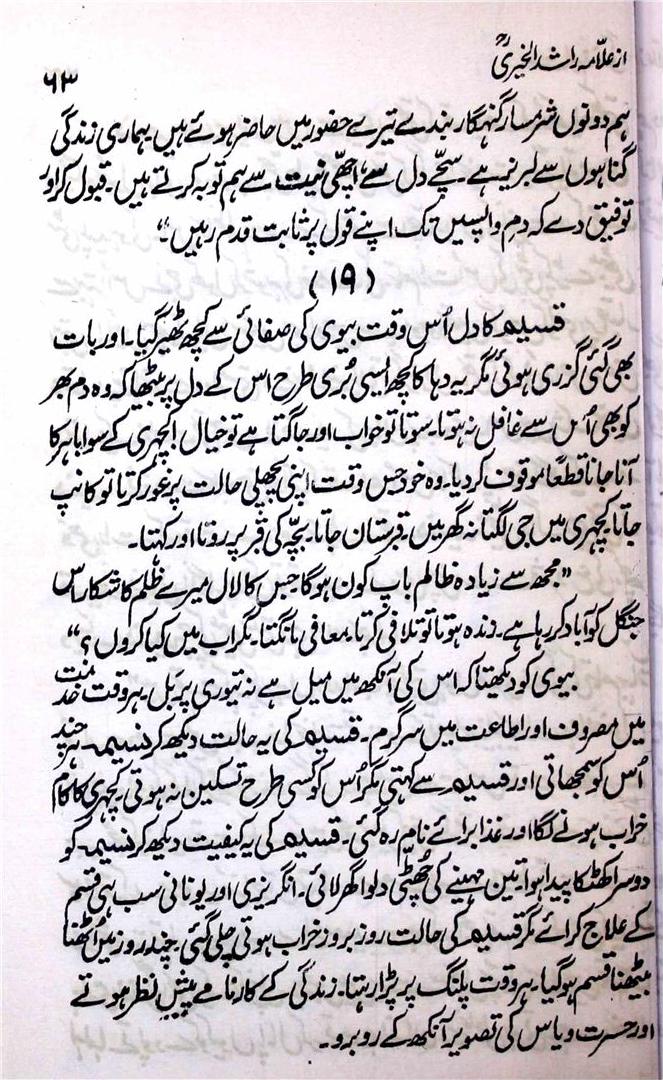 از علامہ راشد الخیریؒ
۶۳
ہم دونوں شرمسار گنہگار بندے تیرے حضور میں حاضر ہوئے ہیں۔ ہماری زندگی
گناہوں سے لبریز ہے۔ سچّے دل سے، اچھّی نیت سے ہم توبہ کرتے ہیں۔ قبول کر اور
توفیق دے کہ دمِ واپسیں تک اپنے قول پر ثابت قدم رہیں۔"
(۱۹)
قسیم کا دل اُس وقت بیوی کی صفائی سے کچھ ٹھیر گیا۔ اور بات
بھی گئی گزری ہوئی مگر یہ دہا کا کچھ ایسی بُری طرح اس کے دل پر بیٹھا کہ وہ دم بھر
کو بھی اُس سے غافل نہ ہوتا۔ سوتا تو خواب اور جاگتا ہے تو خیال! کچہری کے سوا باہر کا
آنا جانا قطعًا موقوف کر دیا۔ وہ خود جس وقت اپنی پچھلی حالت پر غور کرتا تو کانپ
جاتا۔ کچہری میں جی لگتا نہ گھر میں۔ قبرستان جاتا۔ بچّہ کی قبر پر روتا اور کہتا۔
"مجھ سے زیادہ ظالم باپ کون ہوگا جس کا لال میرے ظلم کا شکار اس
جنگل کو آباد کر رہا ہے۔ زندہ ہوتا تو تلافی کرتا، معافی مانگتا۔ مگر اب میں کیا کروں؟"
بیوی کو دیکھتا کہ اس کی آنکھ میں میل ہے نہ تیوری پر بَل۔ ہر وقت خدمت
میں مصروف اور اطاعت میں سرگرم۔ قسیم کی یہ حالت دیکھ کر نسیمہ ہر چند
اُس کو سمجھاتی اور قسیم سے کہتی مگر اُس کو کسی طرح تسکین نہ ہوتی۔ کچہری کا کام
خراب ہونے لگا اور غذا برائے نام رہ گئی۔ قسیم کی یہ کیفیت دیکھ کر نسیمہ کو
دوسرا کھٹکا پیدا ہوا۔ تین مہینے کی چھُٹی دلوا گھر لائی۔ انگریزی اور یونانی سب ہی قسم
کے علاج کرائے مگر قسیم کی حالت روز بروز خراب ہوتی چلی گئی۔ چند روز میں اُٹھنا
بیٹھنا قسم ہو گیا۔ ہر وقت پلنگ پر پڑا رہتا۔ زندگی کے کارنامے پیشِ نظر ہوتے
اور حسرت و یاس کی تصویر آنکھ کے روبرو۔